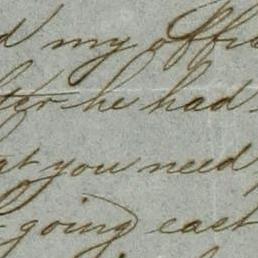 d my offic
ter he had
at you need
going east